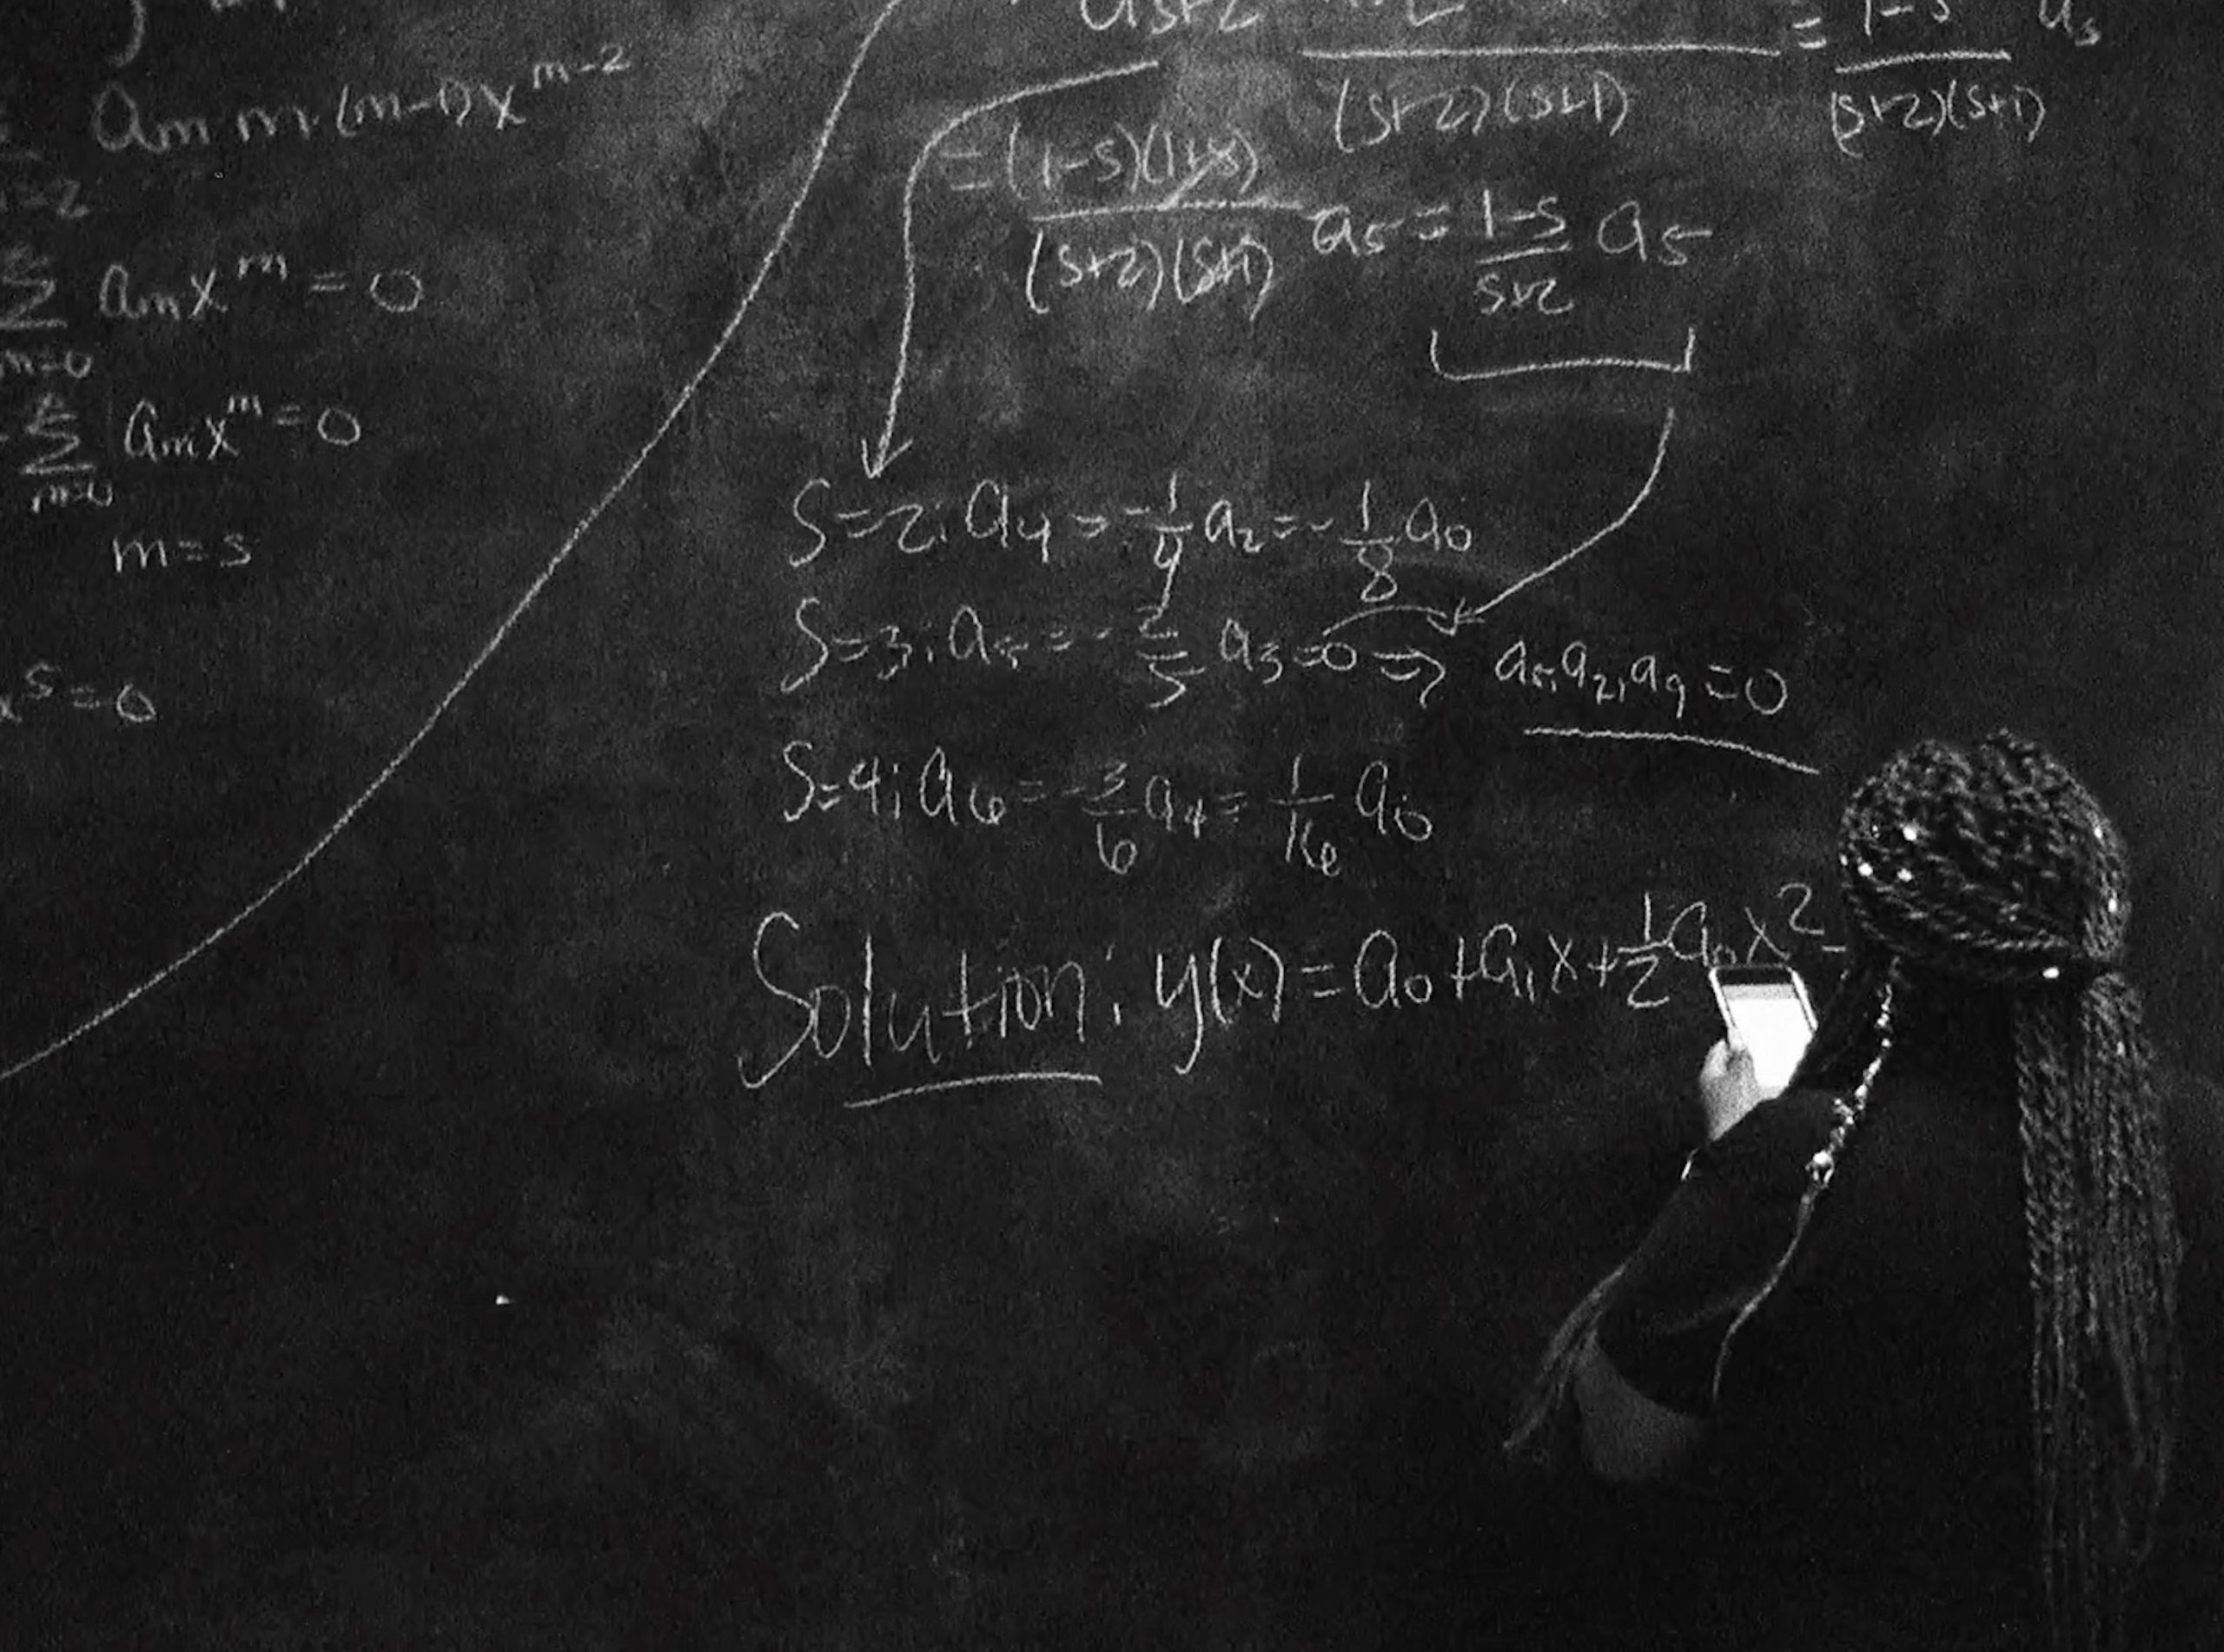 aₘ m (m-1) x^(m-2)
∑ aₘ x^m = 0
m=0
∑ aₘ x^m = 0
m=0
m = s
x^s = 0
(s+2)(s+1)
(s+2)(s+1)
= (1-s)(1+s)/(s+2)(s+1) a_s = (1-s)/(s+2) a_s
S=2; a₄ = -1/4 a₂ = -1/8 a₀
S=3; a₅ = -2/5 a₃ = 0 ⇒ a₅, a₂, a₉ = 0
S=4; a₆ = -3/6 a₄ = 1/16 a₀
Solution: y(x) = a₀ + a₁x + 1/2 a₀x² -